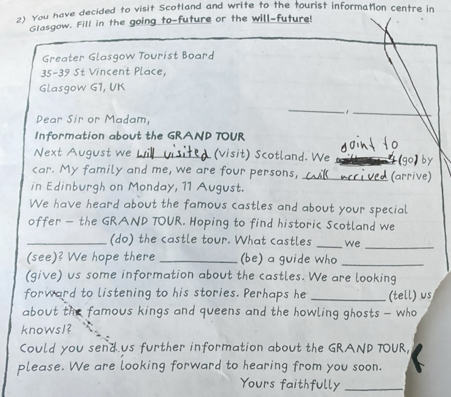 2) You have decided to visit Scotland and write to the tourist information centre in
Glasgow. Fill in the going to-future or the will-future!
Greater Glasgow Tourist Board
35-39 St Vincent Place,
Glasgow G1, UK
____________, ________
Dear Sir or Madam,
Information about the GRAND TOUR
goint to
Next August we will visited (visit) Scotland. We (go) by
car. My family and me, we are four persons, will arrived (arrive)
in Edinburgh on Monday, 11 August.
We have heard about the famous castles and about your special
offer – the GRAND TOUR. Hoping to find historic Scotland we
____________ (do) the castle tour. What castles ____ we __________
(see)? We hope there ____________ (be) a guide who ____________
(give) us some information about the castles. We are looking
forward to listening to his stories. Perhaps he ___________ (tell) us
about the famous kings and queens and the howling ghosts – who
knows!?
Could you send us further information about the GRAND TOUR,
please. We are looking forward to hearing from you soon.
Yours faithfully _________